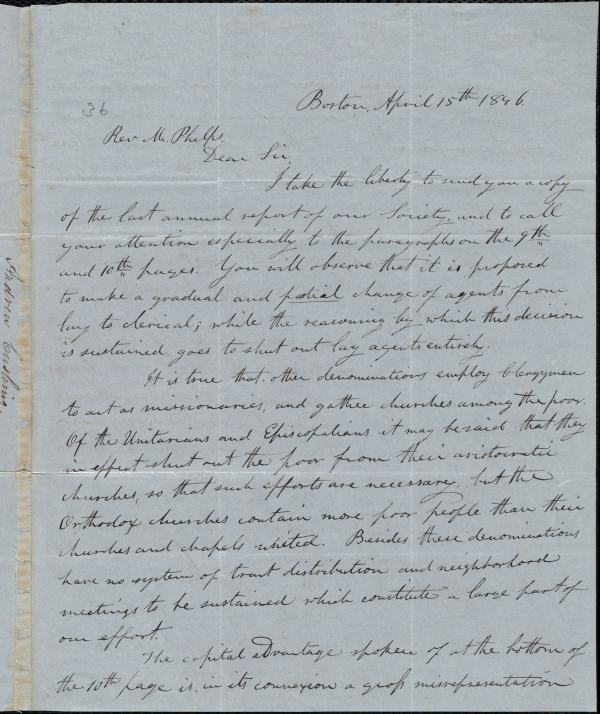 36
Boston, April 15th 1846.
Rev. Mr. Phelps,
Dear Sir,
I take the liberty to send you a copy
of the last annual report of our Society, and to call
your attention especially to the paragraphs on the 9th
and 10th pages. You will observe that it is proposed
to make a gradual and partial change of agents from
lay to clerical; while the reasoning by which this decision
is sustained, goes to shut out lay agents entirely.
It is true that other denominations employ Clergymen
to act as missionaries, and gather churches among the poor.
Of the Unitarians and Episcopalians it may be said that they
in effect shut out the poor from their aristocratic
churches, so that such efforts are necessary, but the
Orthodox churches contain more poor people than their
churches and chapels united. Besides these denominations
have no system of tract distribution and neighborhood
meetings to be sustained which constitute a large part of
our effort.
The capital advantage spoken of at the bottom of
the 10th page is, in its connexion a gross misrepresentation
Andrew Cushing.